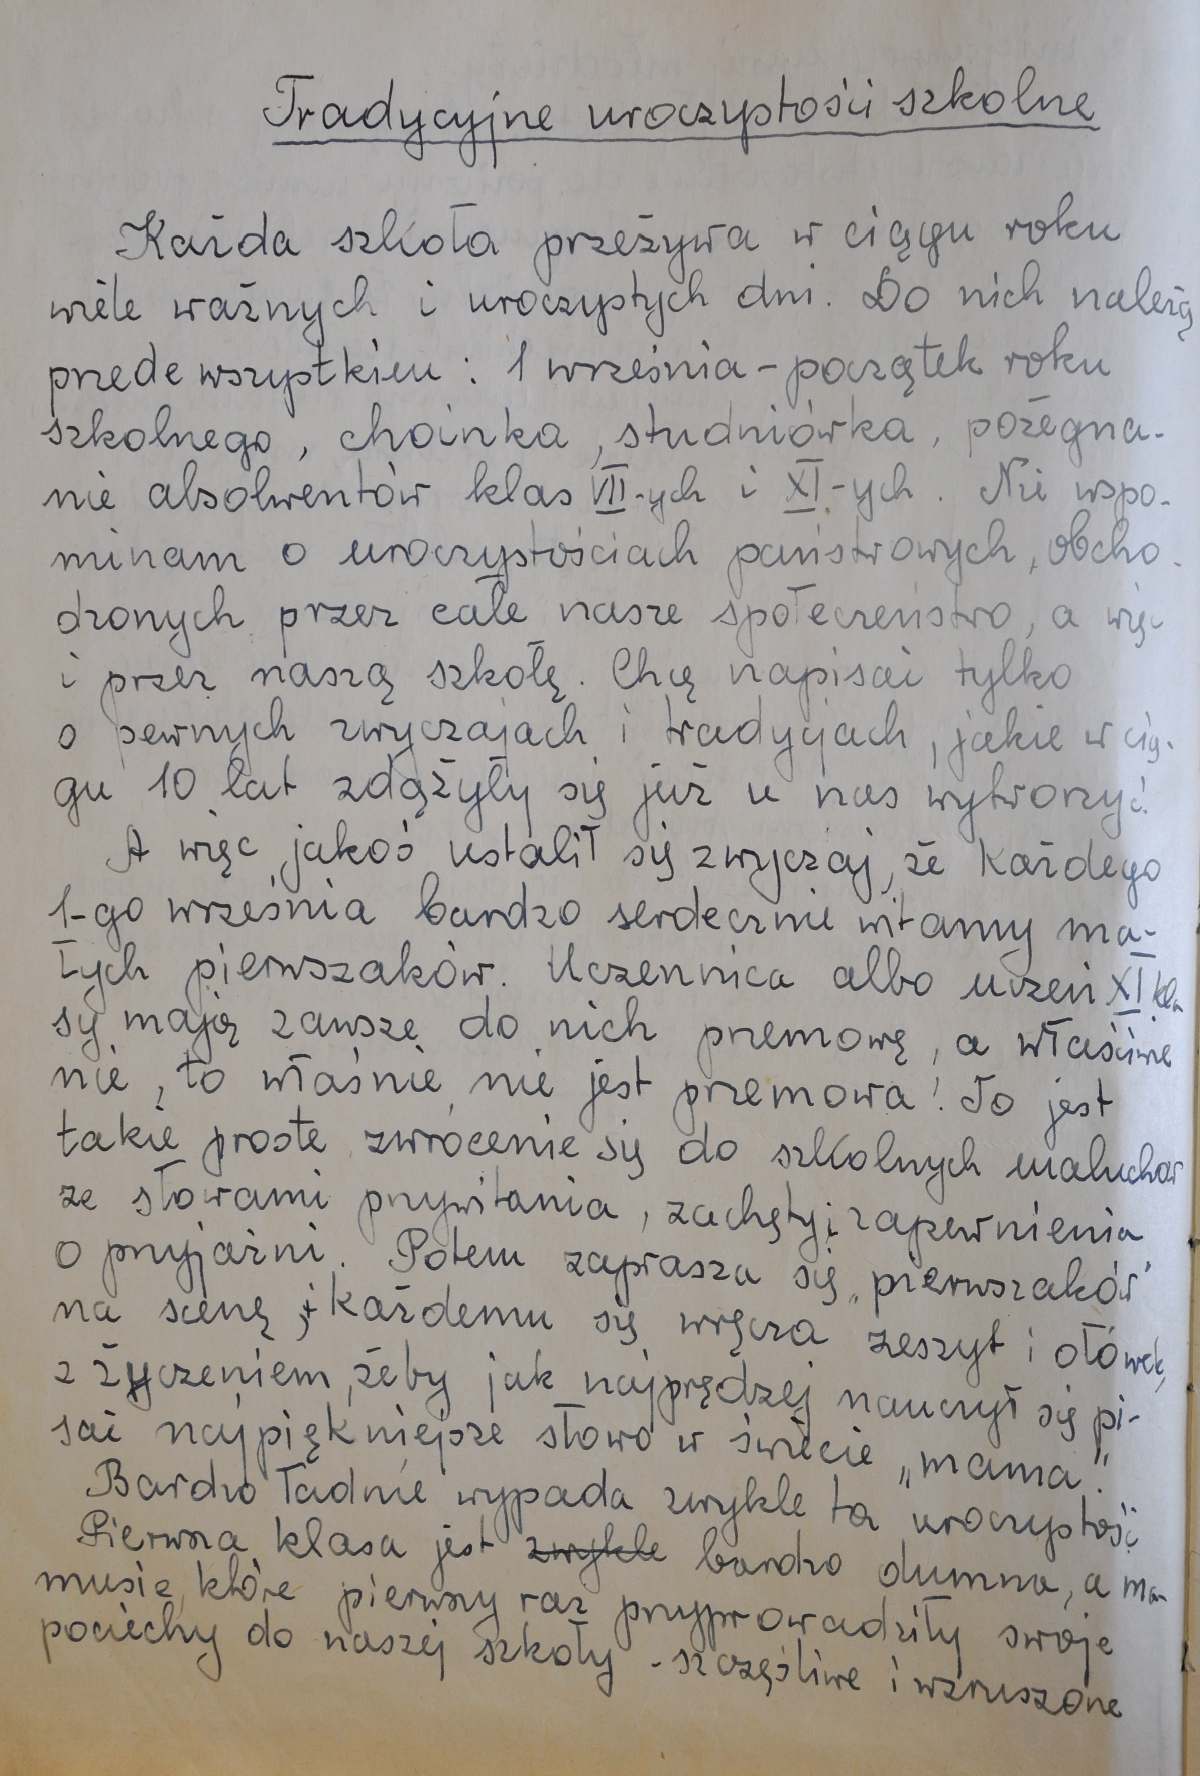 Tradycyjne uroczystości szkolne
Każda szkoła przeżywa w ciągu roku
wiele ważnych i uroczystych dni. Do nich należą
przede wszystkiem : 1 września – początek roku
szkolnego, choinka, studniówka, pożegna-
nie absolwentów klas VII-ych i XI-ych. Nie wspo-
minam o uroczystościach państwowych, obcho-
dzonych przez całe nasze społeczeństwo, a więc
i przez naszą szkołę. Chcę napisać tylko
o pewnych zwyczajach i tradycjach, jakie w cią-
gu 10 lat zdążyły się już u nas wytworzyć.
A więc jakoś ustalił się zwyczaj, że każdego
1-go września bardzo serdecznie witamy ma-
łych pierwszaków. Uczennica albo uczeń XI kla
sy mają zawsze do nich przemowę, a właściwie
nie, to właśnie nie jest przemowa! To jest
takie proste zwrócenie się do szkolnych maluchów
ze słowami przywitania, zachęty i zapewnienia
o przyjaźni. Potem zaprasza się „pierwszaków"
na scenę i każdemu się wręcza zeszyt i ołówek,
z życzeniem, żeby jak najprędzej nauczył się pi-
sać najpiękniejsze słowo w świecie „mama".
Bardzo ładnie wypada zwykle ta uroczystość
Pierwsza klasa jest zwykle bardzo dumna, a ma
musie, które pierwszy raz przyprowadziły swoje
pociechy do naszej szkoły - szczęśliwe i wzruszone